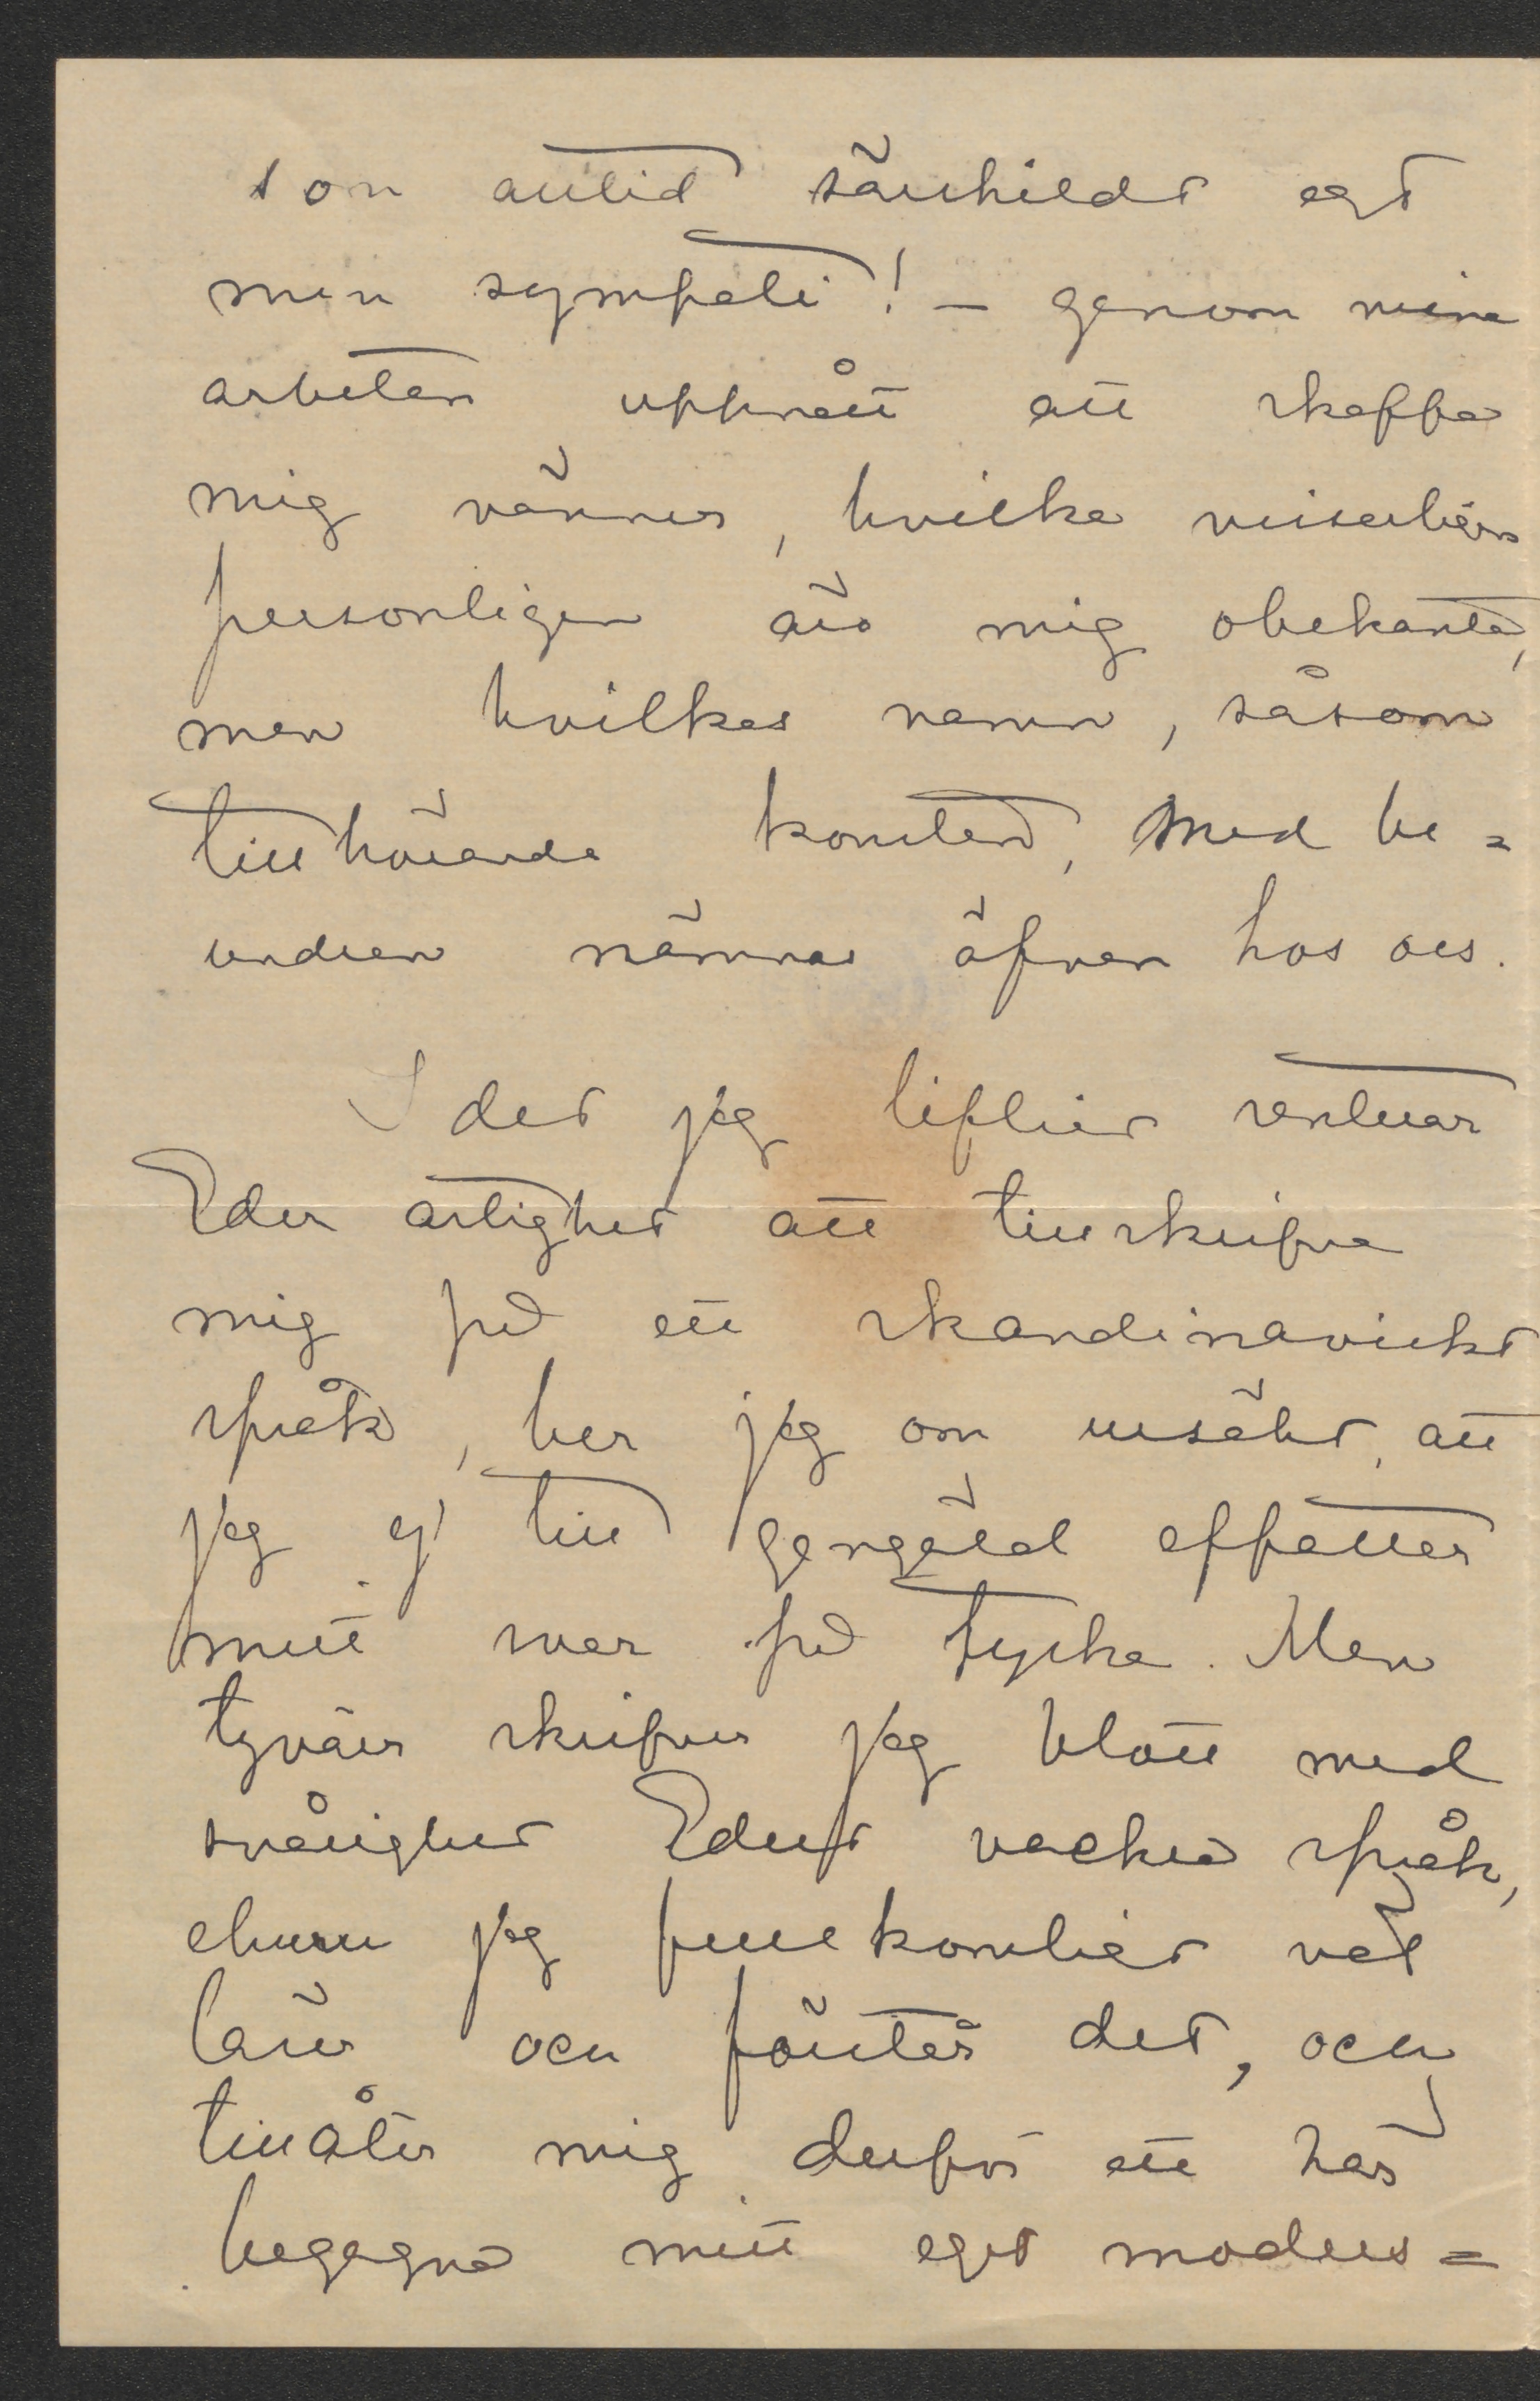 som alltid särskildt egt
min sympati! – genom mina
arbeten uppnått att skaffa
mig vänner, hvilka visserligen
personligen äro mig obekanta,
men hvilkas namn, såsom
tillhörande konsten, med be=
undran nämnas äfven hos oss.
I det jag lifligt
Eder artighet att tillskrifva
mig på ett skandinaviskt
språk, ber jag om ursäkt, att
jag ej till gengäld affattar
mitt svar på tyska. Men
tyvärr skrifver jag blott med
svårighet Edert vackra språk,
ehuru jag fullkomligt väl
läser och förstår det, och
tillåter mig derför att här
begagna mitt eget moders=